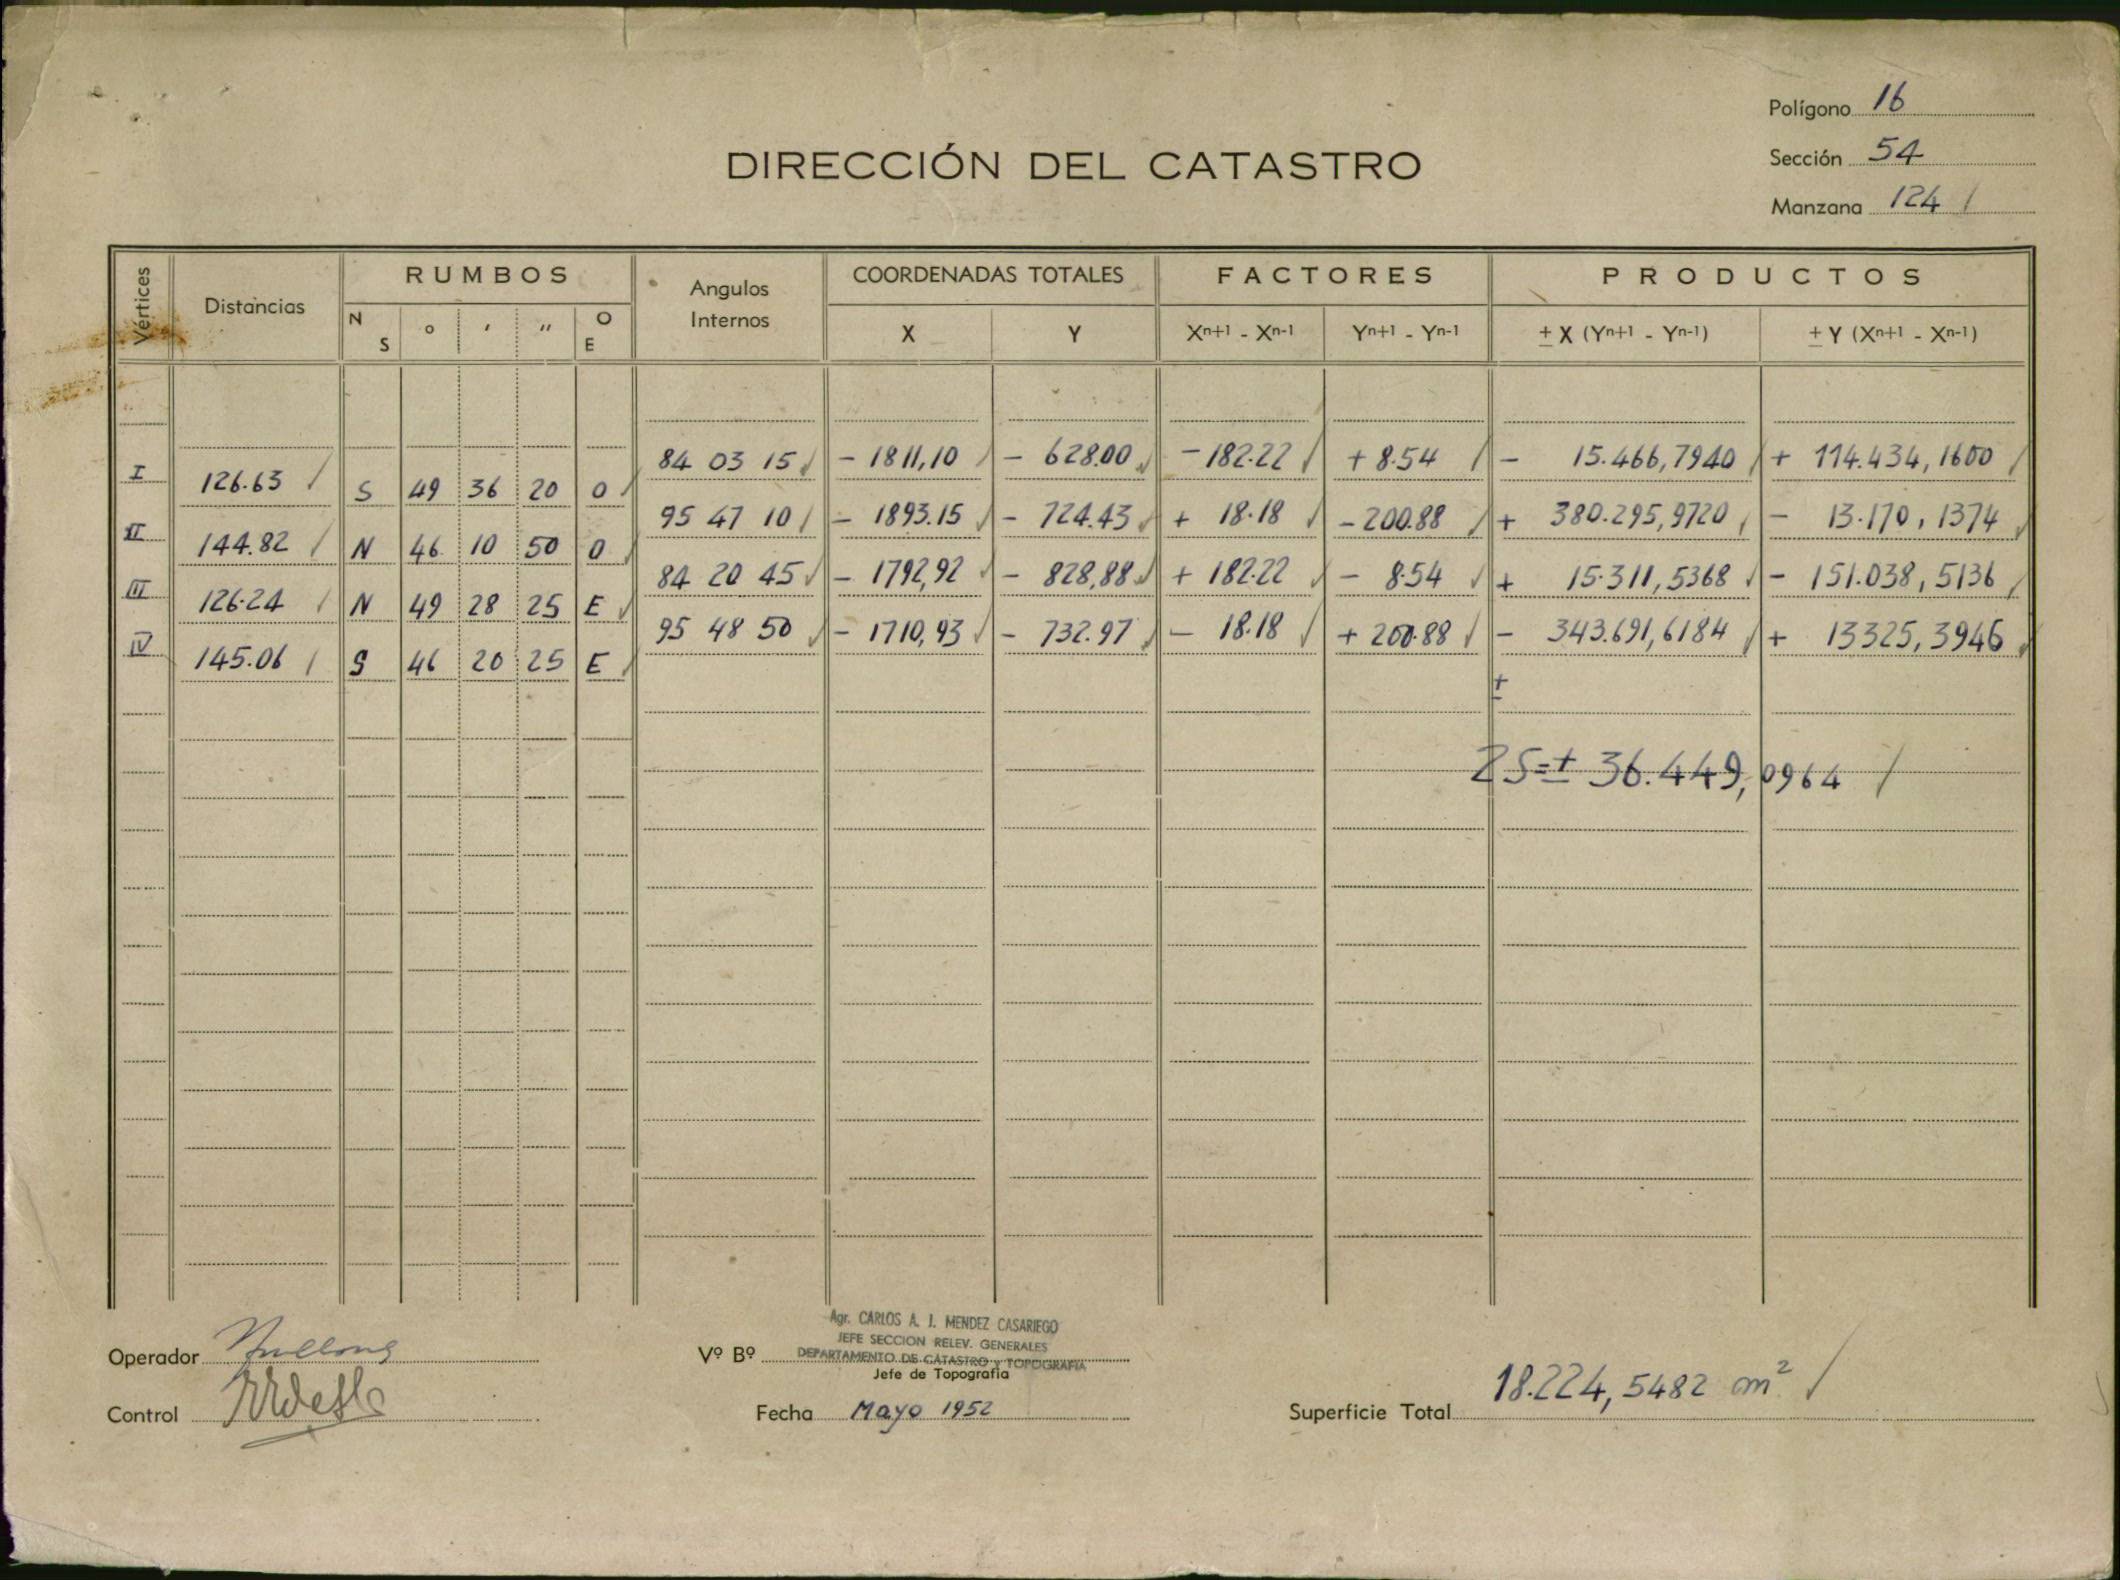 Polígono 16
Sección 54
Manzana 124
DIRECCIÓN DEL CATASTRO
Vértices Distancias RUMBOS Angulos Internos COORDENADAS TOTALES FACTORES PRODUCTOS
N S ° ′ ″ O E X Y Xⁿ⁺¹ - Xⁿ⁻¹ Yⁿ⁺¹ - Yⁿ⁻¹ ± X (Yⁿ⁺¹ - Yⁿ⁻¹) ± Y (Xⁿ⁺¹ - Xⁿ⁻¹)
84 03 15 - 1811,10 - 628.00 - 182.22 + 8.54 - 15.466,7940 + 114.434,1600
I 126.63 S 49 36 20 O
95 47 10 - 1893.15 - 724.43 + 18.18 - 200.88 + 380.295,9720 - 13.170,1374
II 144.82 N 46 10 50 O
84 20 45 - 1792,92 - 828,88 + 182.22 - 8.54 + 15.311,5368 - 151.038,5136
III 126.24 N 49 28 25 E
95 48 50 - 1710,93 - 732.97 - 18.18 + 200.88 - 343.691,6184 + 13325,3946
IV 145.06 S 46 20 25 E
±
2S=± 36.449,0964
Agr. CARLOS A. J. MENDEZ CASARIEGO
JEFE SECCION RELEV. GENERALES
DEPARTAMENTO DE CATASTRO Y TOPOGRAFIA
Operador
Vº Bº
Jefe de Topografía
Control
Fecha Mayo 1952
Superficie Total 18.224,5482 m²